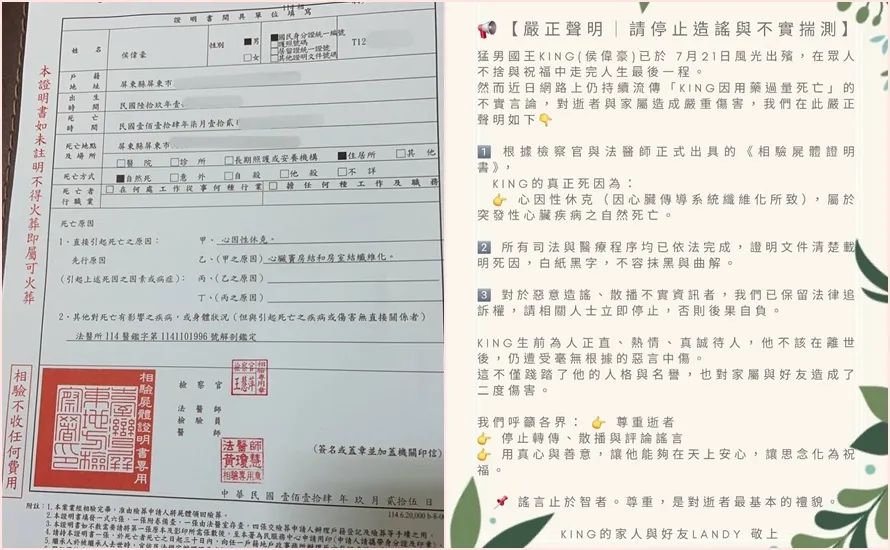 證明書開具單位填寫
姓名
侯偉豪
性別
■男
□女
■國民身分證統一編號
□護照號碼
□居留證統一證號
□其他證明文件號碼
T12
戶籍地址
屏東縣屏東市
出生時間
民國陸拾玖年壹
死亡時間
民國壹佰壹拾肆年柒月壹拾貳
死亡地點及場所
屏東縣屏東市
□醫院 □診所 □長期照護或安養機構 ■住居所 □其他
死亡方式
■自然死 □意外 □自殺 □他殺 □不詳
死亡者行職業
□在何處工作從事何種行業
□擔任何種工作及職務
死亡原因
1、直接引起死亡之原因： 甲、心因性休克。
先行原因 乙、(甲之原因)心臟竇房結和房室結纖維化。
(引起上述死因之因素或病症)： 丙、(乙之原因)
丁、(丙之原因)
2、其他對死亡有影響之疾病，或身體狀況（但與引起死亡之疾病或傷害無直接關係者）
法醫所114醫鑑字第1141101996號解剖鑑定
本證明書如未註明不得火葬即屬可火葬
相驗不收任何費用
相驗屍體證明書專用
檢察官
法醫師
檢驗員
醫師
法醫師
相驗專用章
(簽名或蓋章並加蓋機關印信)
中華民國壹佰壹拾肆年玖月貳拾伍日
114.6.20,000
附註：1.本案業經相驗完畢，准由殮葬申請人將屍體領回殮葬。
📢【嚴正聲明｜請停止造謠與不實揣測】
猛男國王KING(侯偉豪)已於 7月21日風光出殯，在眾人
不捨與祝福中走完人生最後一程。
然而近日網路上仍持續流傳「KING因用藥過量死亡」的
不實言論，對逝者與家屬造成嚴重傷害，我們在此嚴正
聲明如下👇
1️⃣ 根據檢察官與法醫師正式出具的《相驗屍體證明
書》，
KING的真正死因為：
👉 心因性休克（因心臟傳導系統纖維化所致），屬於
突發性心臟疾病之自然死亡。
2️⃣ 所有司法與醫療程序均已依法完成，證明文件清楚載
明死因，白紙黑字，不容抹黑與曲解。
3️⃣ 對於惡意造謠、散播不實資訊者，我們已保留法律追
訴權，請相關人士立即停止，否則後果自負。
KING生前為人正直、熱情、真誠待人，他不該在離世
後，仍遭受毫無根據的惡言中傷。
這不僅踐踏了他的人格與名譽，也對家屬與好友造成了
二度傷害。
我們呼籲各界： 👉 尊重逝者
👉 停止轉傳、散播與評論謠言
👉 用真心與善意，讓他能夠在天上安心，讓思念化為祝
福。
📌 謠言止於智者。尊重，是對逝者最基本的禮貌。
KING的家人與好友LANDY 敬上